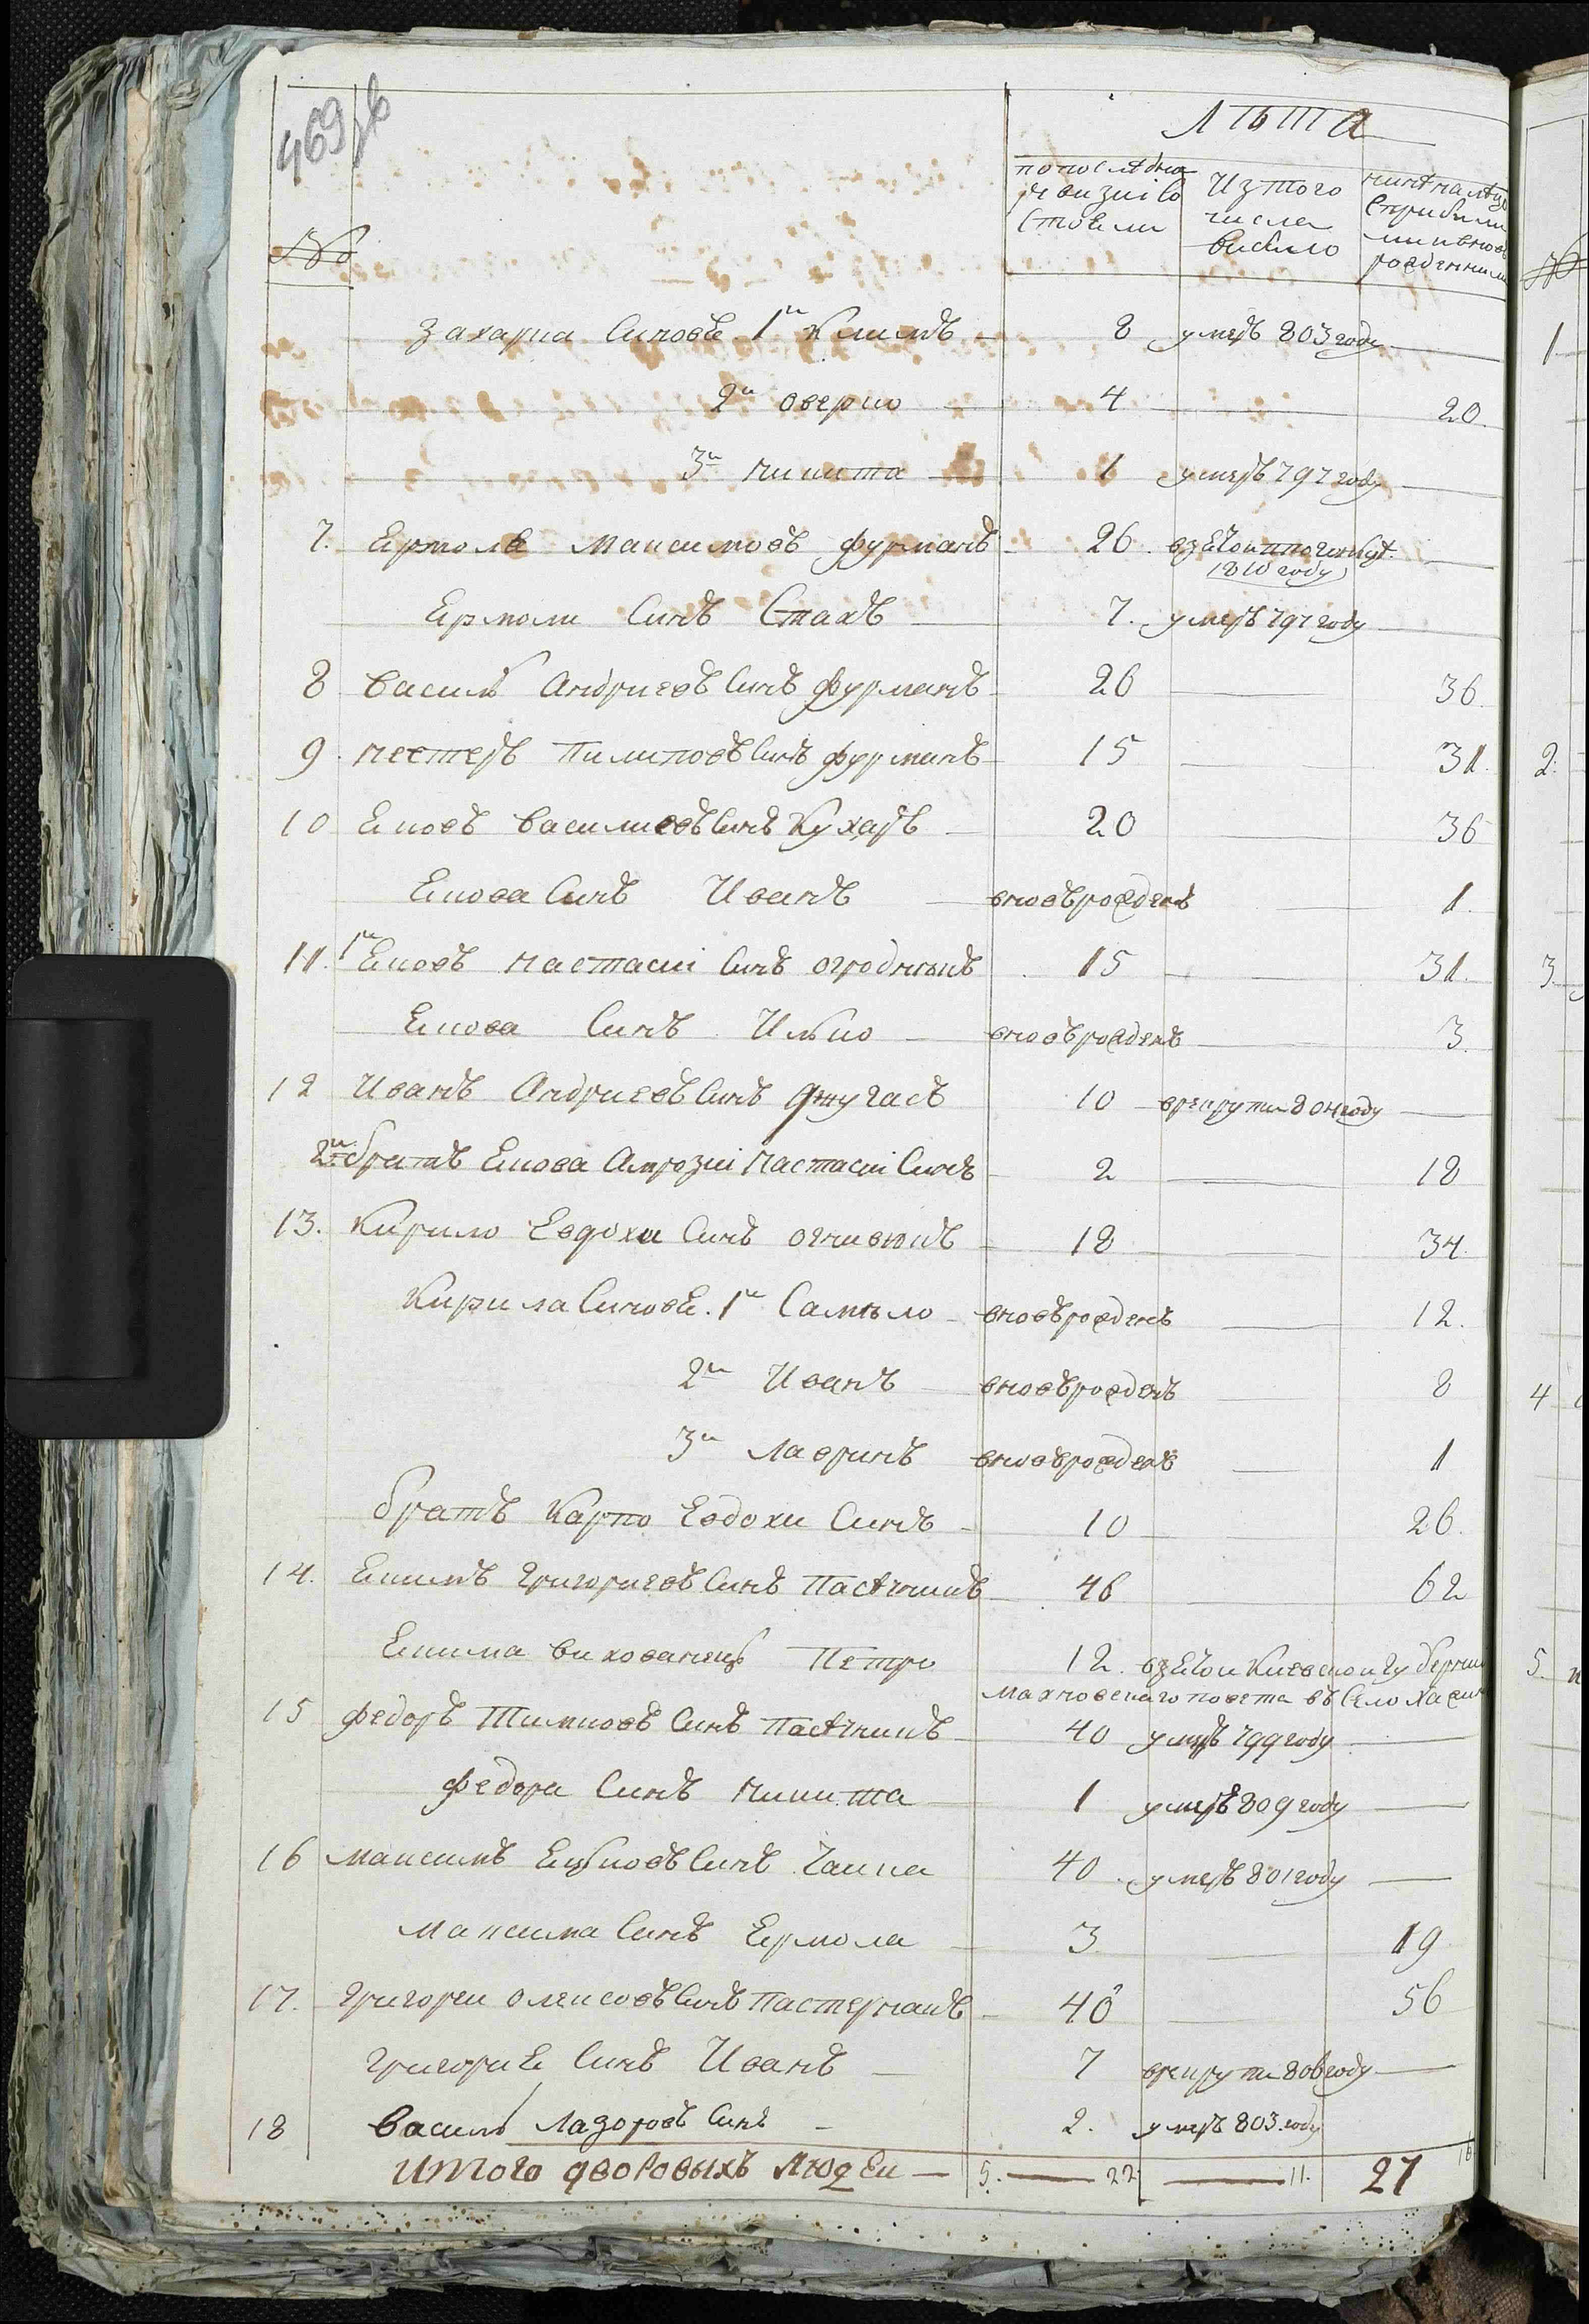 469 об
Лѣта
№
по последнѣ ревизіи состояли
Изтого числа выбыло
нинѣ налицо сприбилими ивновъ рожденними
Захарка Синове 1й Климъ 8 умеръ 803 году
2й Оверко 4 20
3й Никита 1 умеръ 797 году
7. Ермола Максимовъ фурманъ 26
1810 году
Ермоли Синъ Стахъ 7. умеръ 797 году
8 Василь Андриевъ Синъ фурманъ 20 36
9. Нестеръ Пилиповъ Синъ фурманъ 15 31
10 Яковъ Василиевъ Синъ Кухаръ 20 36
Якова Синъ Иванъ вновъ рожденъ 1
11. 1й Яковъ Настасіи Синъ огродникъ 15 31
Якова Синъ Илько вновъ рожденъ 3
12 Иванъ Андриевъ Синъ 10 врекрути 804 году
2й братъ Якова Амрозіи Настасіи Синъ 2 18
13. Кирило Евдохи Синъ огнивюкъ 18 34
Кирила Синове. 1й Самъло вновъ рожденъ 12.
2й Иванъ вновъ рожденъ 8
3й Лавринъ вновъ рожденъ 1
братъ Карпо Евдохи Синъ 10 26
14. Якимъ Григориевъ Синъ Пасѣчникъ 46 62
Якима вихованецъ Петро 12. взятои Киевскои Губернии
Махновскаго повета въ Село
15 Федоръ Тимковъ Синъ Пасѣчникъ 40 умеръ 799 году
Федора Синъ Никита 1 умеръ 809 году
16 Максимъ Яцковъ Синъ Чайка 40 умеръ 801 году
Максима Синъ Ермола 3 19
17. Григореи Олексовъ Синъ Пастернакъ 40 56
Григория Синъ Иванъ 7 врекрути 806 году
18 Василь Лазоровъ Синъ 2. умеръ 803. году
Итого дворовыхъ людеи 5. 22 11. 27